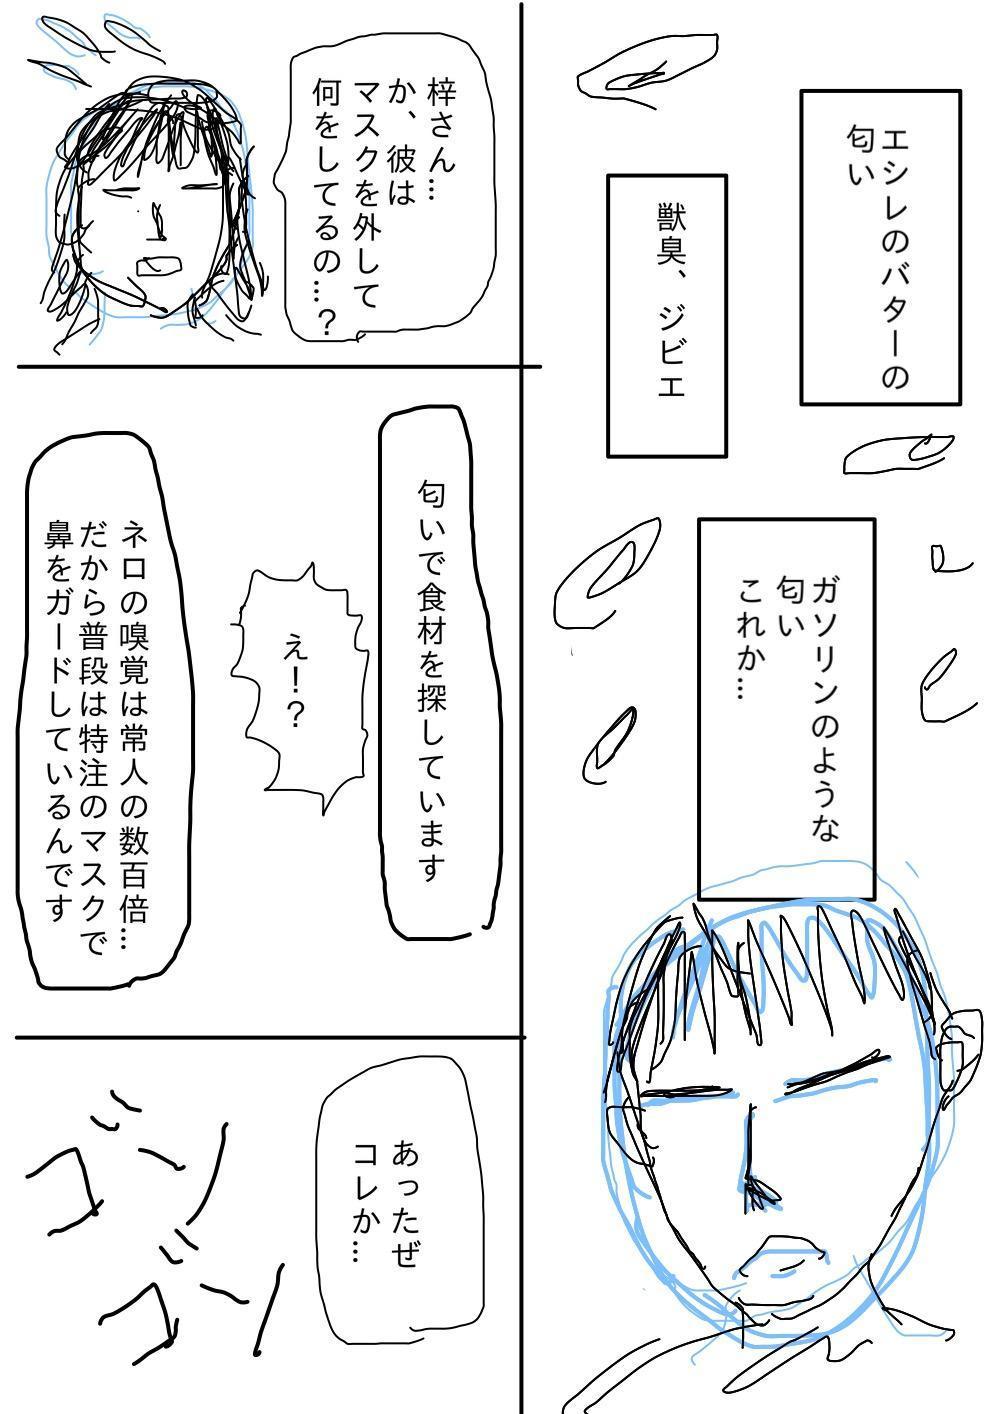 エシレのバターの
匂い
獣臭、ジビエ
ガソリンのような
匂い
これか…
梓さん…
か、彼は
マスクを外して
何をしてるの…？
匂いで食材を探しています
え！？
ネロの嗅覚は常人の数百倍…
だから普段は特注のマスクで
鼻をガードしているんです
あったぜ
コレか…
ゴン
ゴン